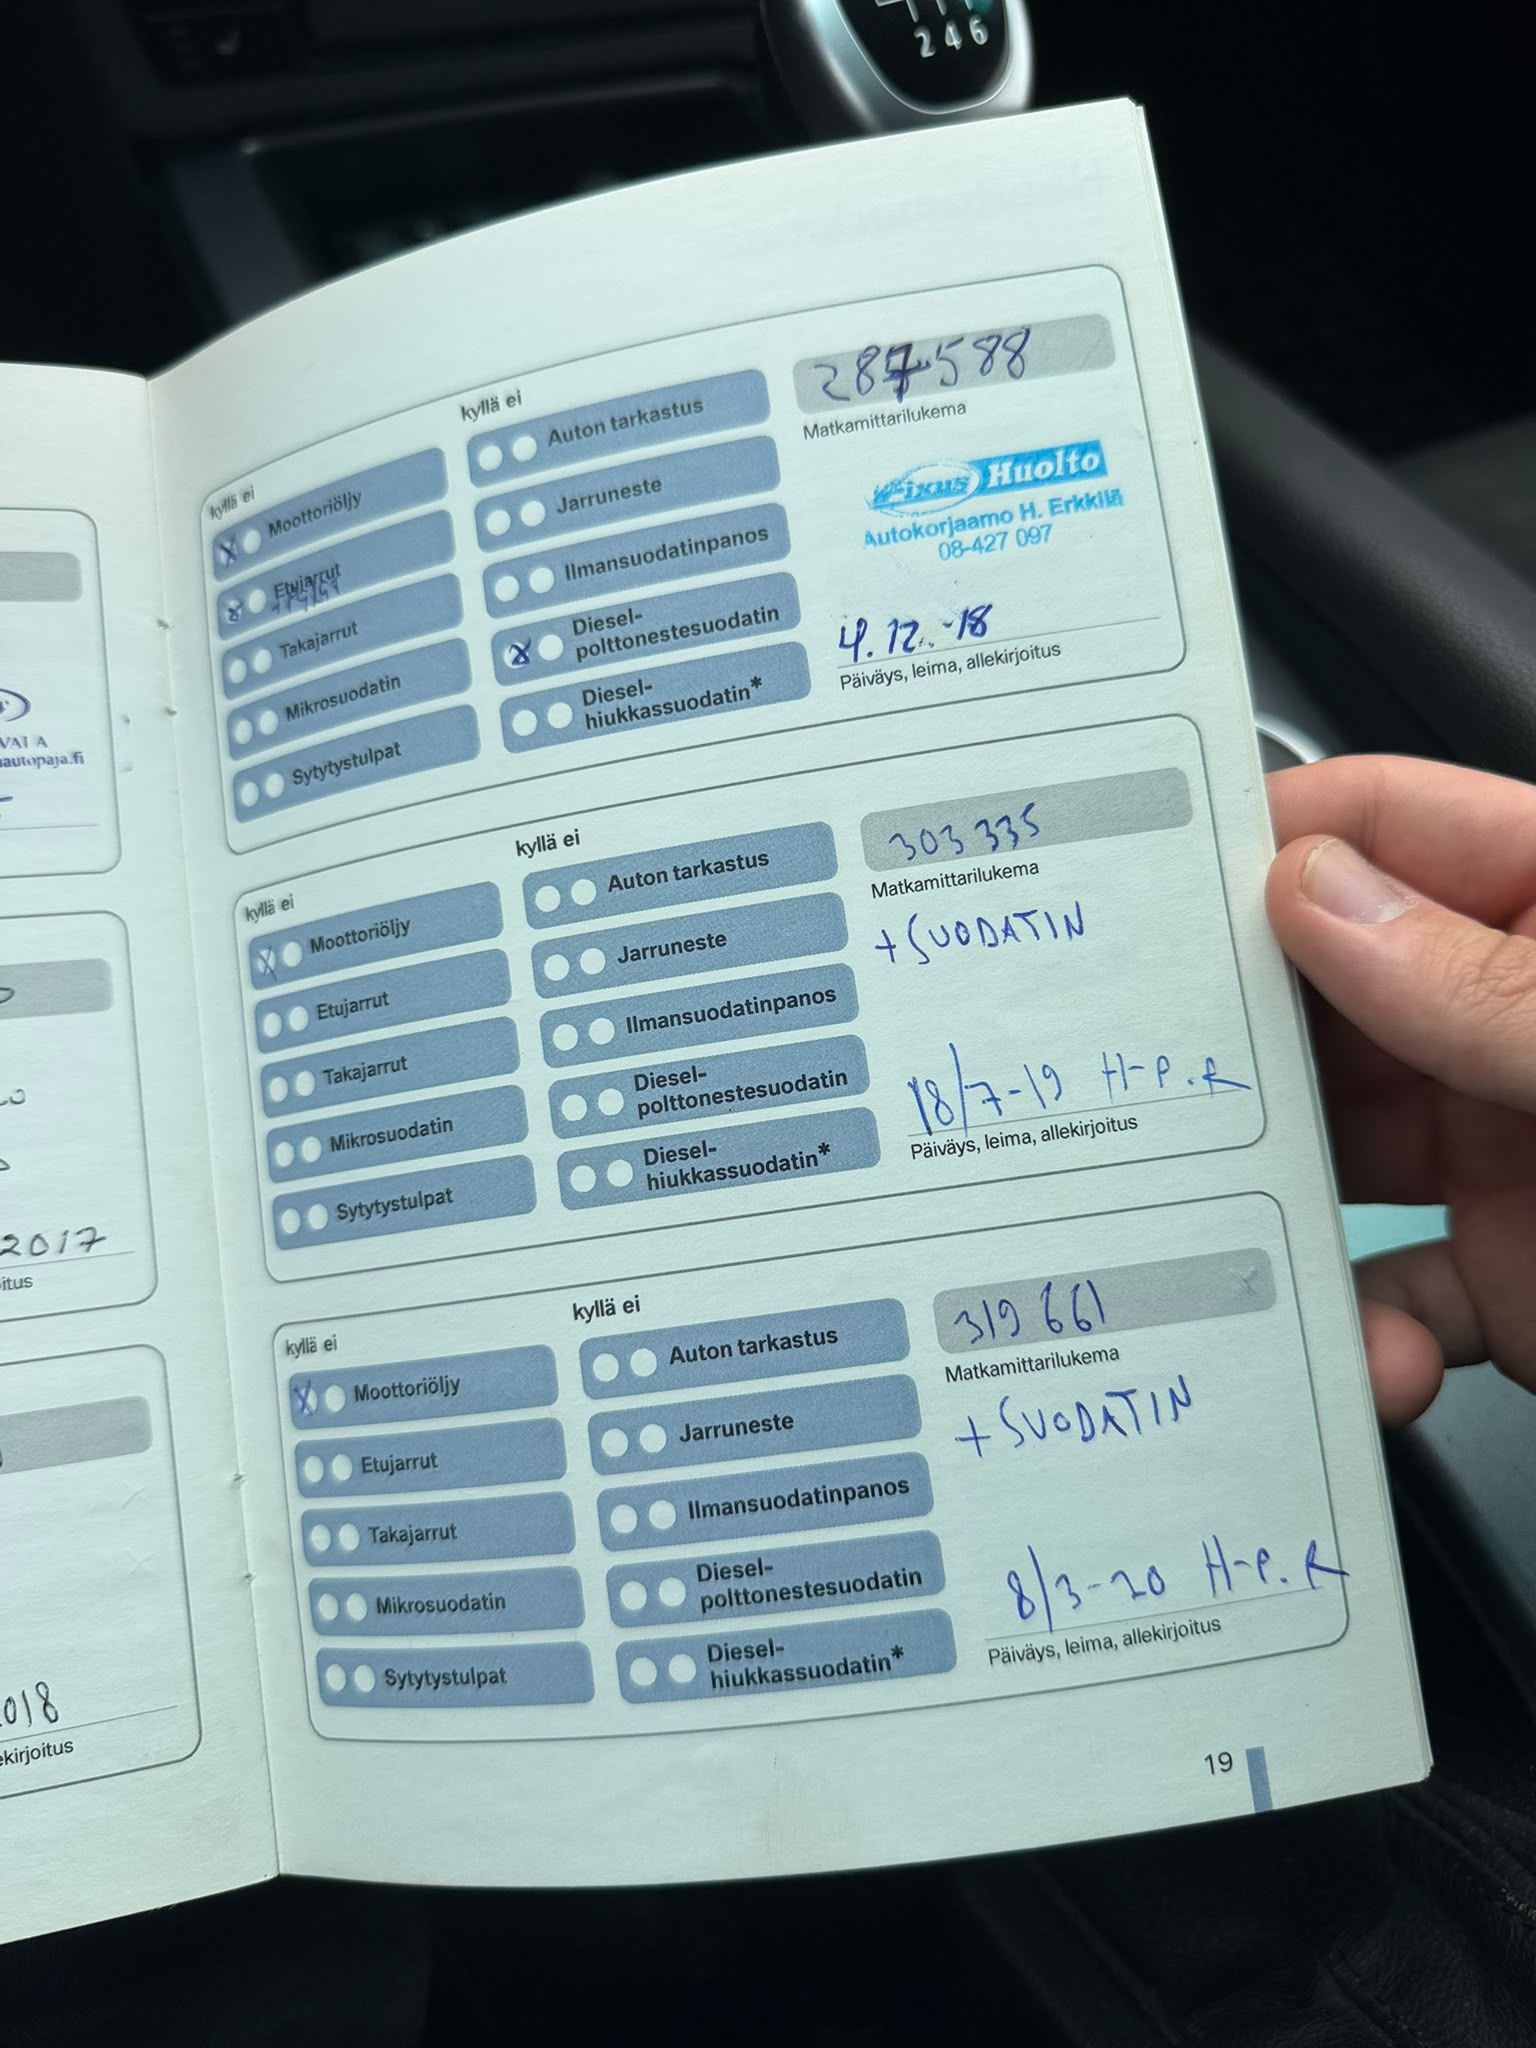 2 4 6
VALA
autopaja.fi
2017
itus
018
ekirjoitus
kyllä ei
Moottoriöljy
Etujarrut
Takajarrut
Mikrosuodatin
Sytytystulpat
kyllä ei
Auton tarkastus
Jarruneste
Ilmansuodatinpanos
Diesel-
polttonestesuodatin
Diesel-
hiukkassuodatin*
287588
Matkamittarilukema
Fixus Huolto
Autokorjaamo H. Erkkilä
08-427 097
4.12.-18
Päiväys, leima, allekirjoitus
kyllä ei
Moottoriöljy
Etujarrut
Takajarrut
Mikrosuodatin
Sytytystulpat
kyllä ei
Auton tarkastus
Jarruneste
Ilmansuodatinpanos
Diesel-
polttonestesuodatin
Diesel-
hiukkassuodatin*
303 335
Matkamittarilukema
+ SUODATIN
18/7-19 H-P.R
Päiväys, leima, allekirjoitus
kyllä ei
Moottoriöljy
Etujarrut
Takajarrut
Mikrosuodatin
Sytytystulpat
kyllä ei
Auton tarkastus
Jarruneste
Ilmansuodatinpanos
Diesel-
polttonestesuodatin
Diesel-
hiukkassuodatin*
319 661
Matkamittarilukema
+ SUODATIN
8/3-20 H-P.R
Päiväys, leima, allekirjoitus
19